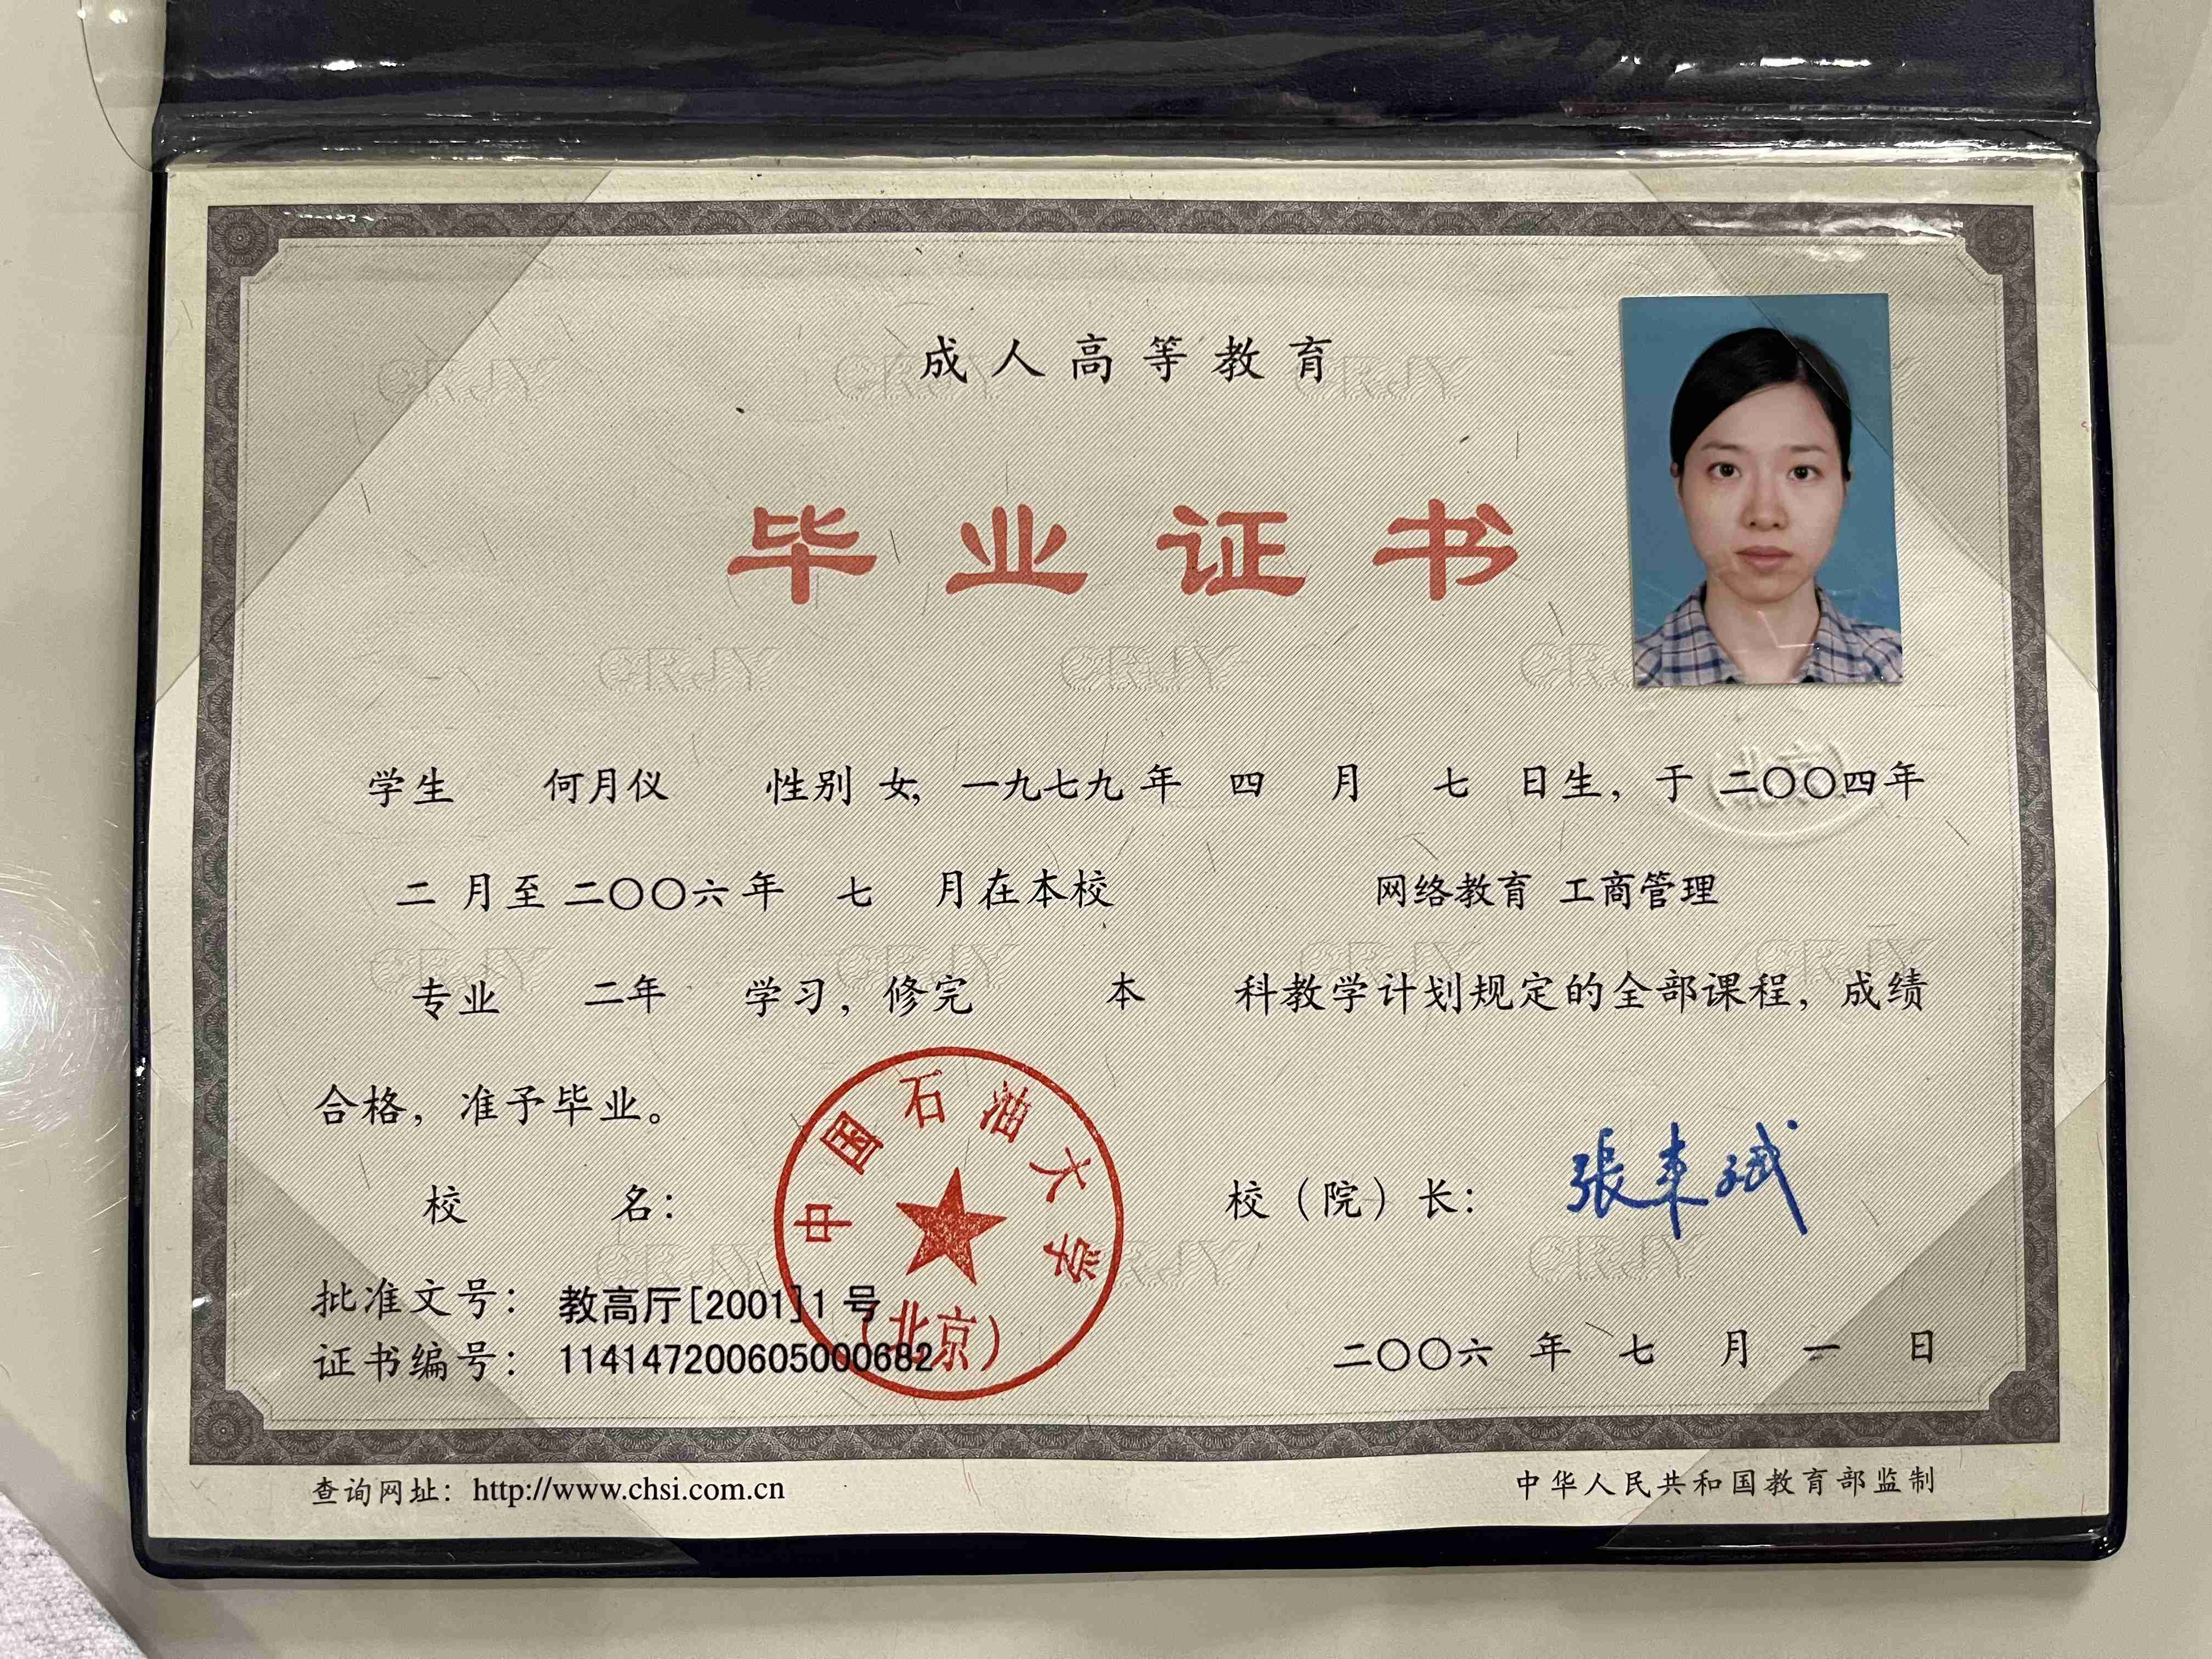 成人高等教育
毕业证书
学生 何月仪 性别 女, 一九七九 年 四 月 七 日生，于 二〇〇四年
二 月至 二〇〇六 年 七 月在本校 网络教育 工商管理
专业 二年 学习，修完 本 科教学计划规定的全部课程，成绩
合格，准予毕业。
中国石油大学
（北京）
校 名： 校（院）长： 張来斌
批准文号： 教高厅[2001]1 号
证书编号： 114147200605000682
二〇〇六 年 七 月 一 日
查询网址：http://www.chsi.com.cn 中华人民共和国教育部监制
CRJY CRJY CRJY CRJY
CRJY CRJY CRJY
CRJY CRJY CRJY CRJY
CRJY CRJY CRJY